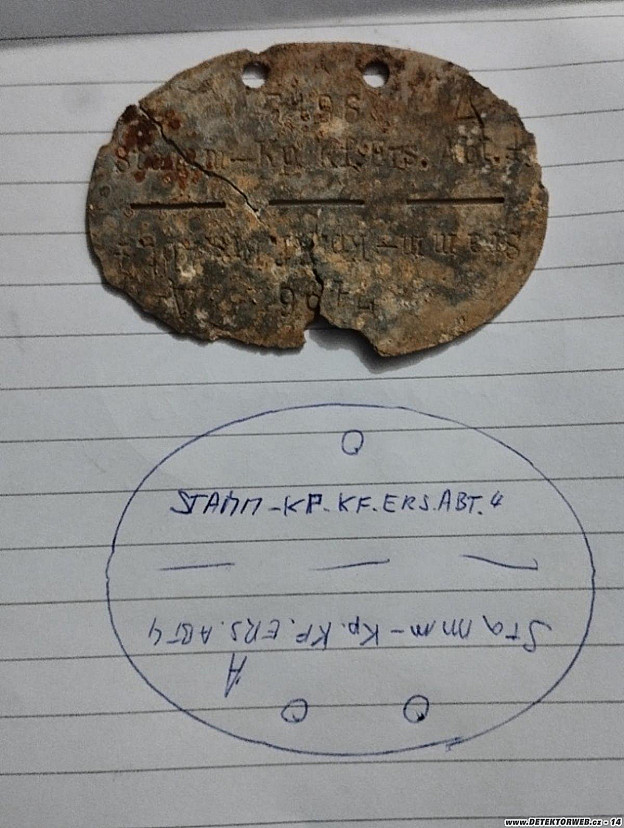 Stamm-Kp. Kf.ers. Abt. 4
Stamm-Kp. Kf.ers. Abt. 4
STAMM-KP-KF.ERS.ABT.4
Stamm-Kp.KF.ERS.ABT4
A
www.DETEKTORWEB.cz - 14